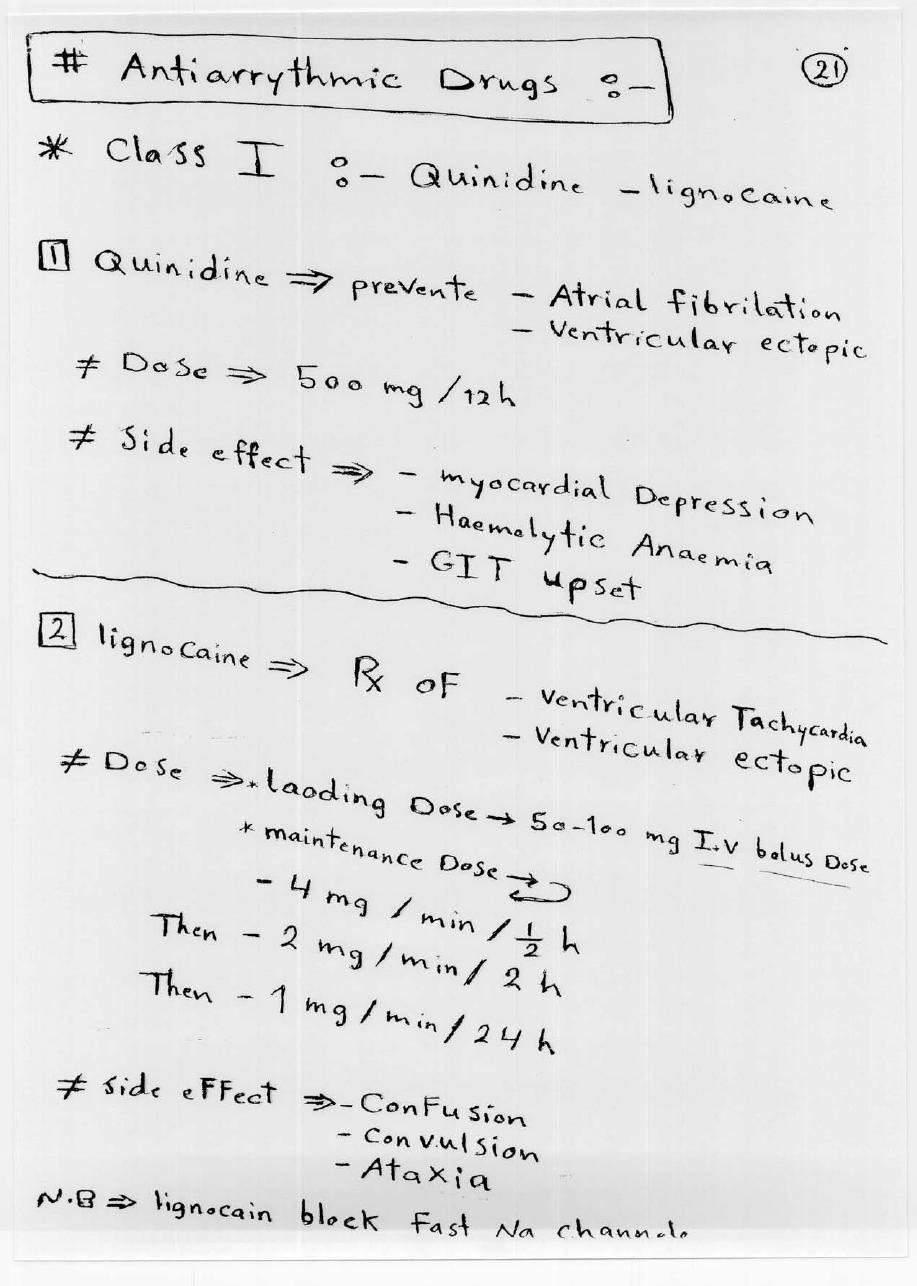 # Antiarrythmic Drugs :-
21
* Class I :- Quinidine - lignocaine
1 Quinidine ⇒ prevente - Atrial fibrilation
- Ventricular ectopic
≠ Dose ⇒ 500 mg /12h
≠ Side effect ⇒ - myocardial Depression
- Haemolytic Anaemia
- GIT upset
2 lignocaine ⇒ Rx oF - Ventricular Tachycardia
- Ventricular ectopic
≠ Dose ⇒ * laoding Dose → 50-100 mg I.V bolus Dose
* maintenance Dose →
- 4 mg / min / 1/2 h
Then - 2 mg / min / 2 h
Then - 1 mg / min / 24 h
≠ side eFFect ⇒ - ConFusion
- Convulsion
- Ataxia
N.B ⇒ lignocain block Fast Na